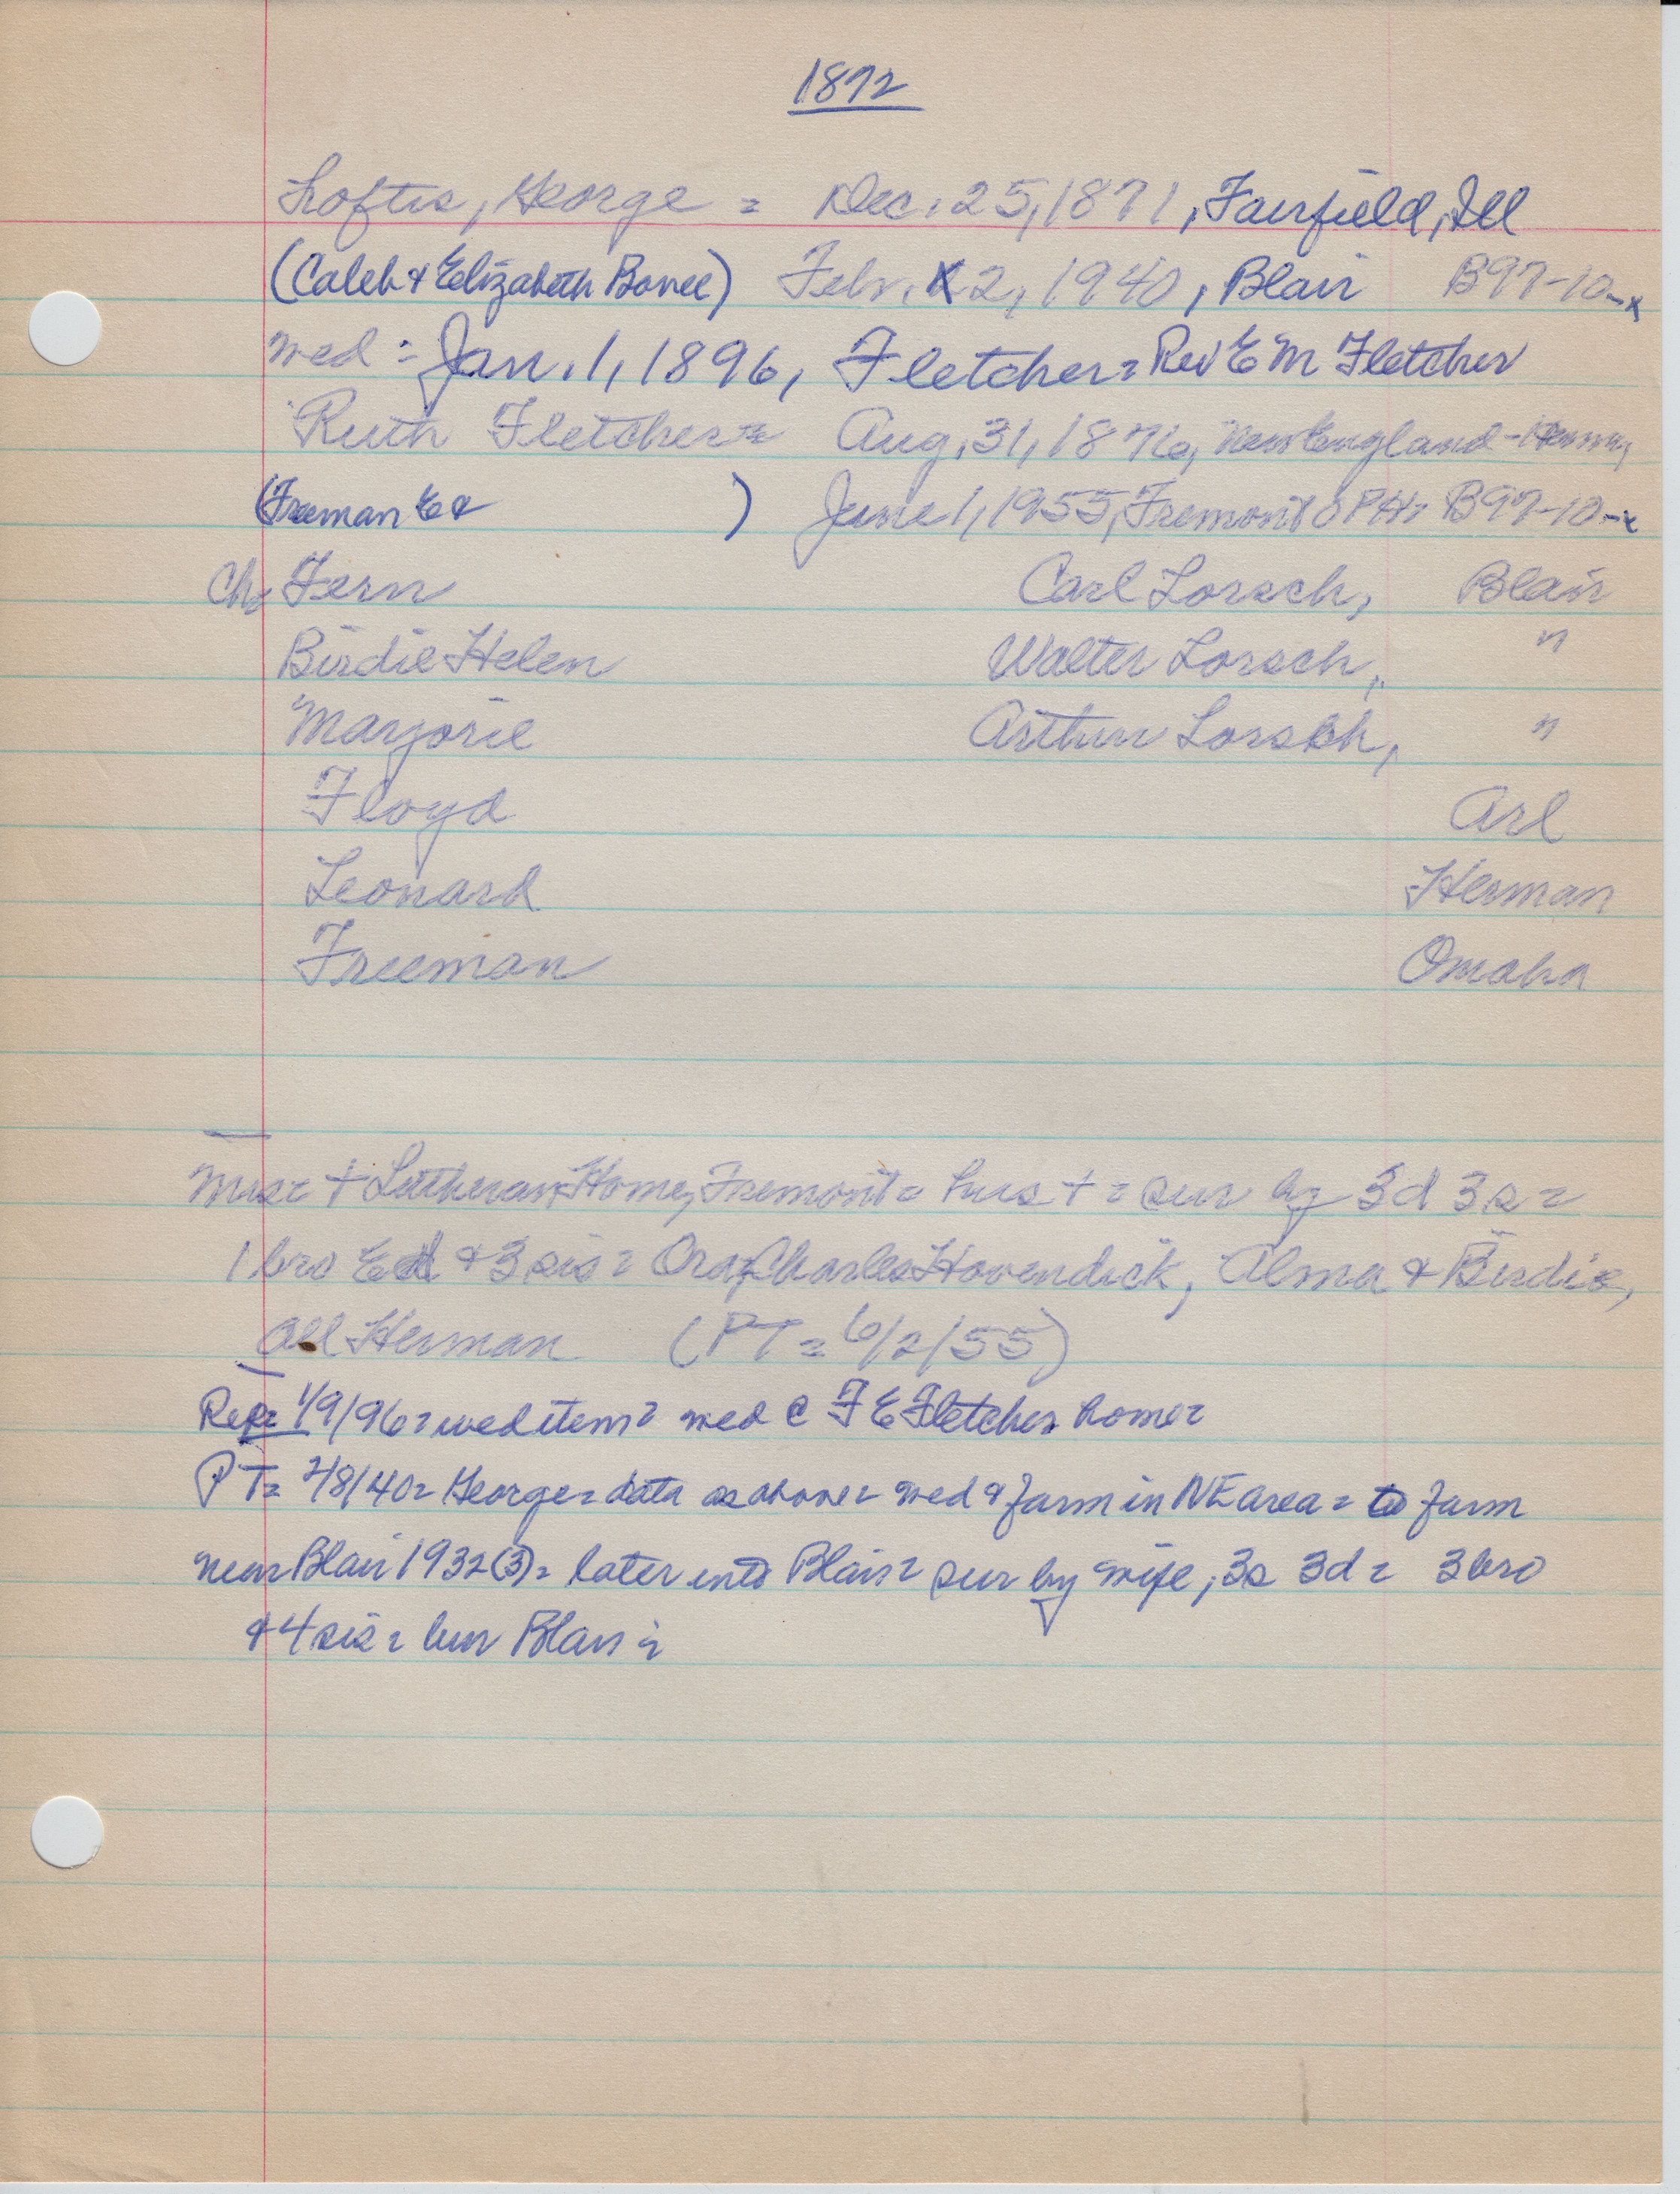 1872
Loftis, George = Dec. 25, 1871, Fairfield, Ill
(Caleb & Elizabeth Bonee) Feb. 2, 1940, Blair B97-10-x
wed = Jan. 1, 1896, Fletcher = Rev E M Fletcher
Ruth Fletcher = Aug. 31, 1876, New England - Herman,
(Freeman E & ) June 1, 1955, Fremont B97-10-x
Ch = Fern Carl Lorsch, Blair
Birdie Helen Walter Lorsch, "
Marjorie Arthur Lorsch, "
Floyd Arl
Leonard Herman
Freeman Omaha
Mrs = + Lutheran Home, Fremont = hus + = sur by 3d 3s =
1 bro Ed & 3 sis = Ora, Charles Hovendick, Alma & Birdie,
All Herman (PT = 6/2/55)
Rep = 1/9/96 = wed item = wed @ F E Fletcher home =
PT = 2/8/40 = George = data as above = wed & farm in NE area = to farm
near Blair 1932(3) = later into Blair = sur by wife, 3s 3d = 3 bro
& 4 sis = bur Blair =